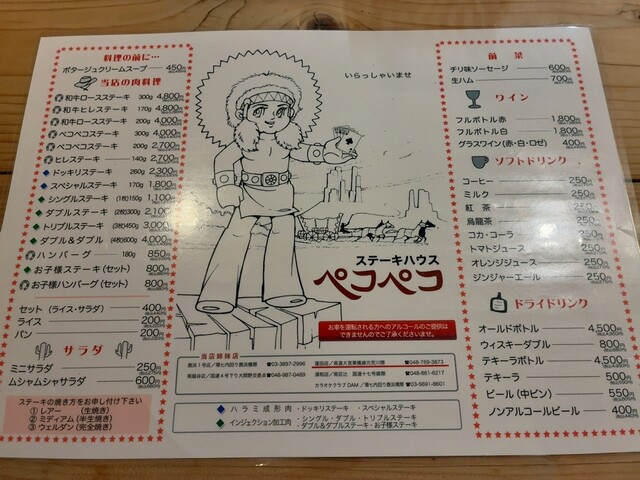 料理の前に…
ポタージュクリームスープ 450円
当店の肉料理
和牛ロースステーキ 300g 4,800円
和牛ヒレステーキ 170g 4,800円
和牛ロースステーキ 200g 4,000円
ペコペコステーキ 300g 4,000円
ペコペコステーキ 200g 2,700円
ヒレステーキ 140g 2,700円
ドッキリステーキ 260g 2,300円
スペシャルステーキ 170g 1,800円
シングルステーキ (1枚)150g 1,100円
ダブルステーキ (2枚)300g 2,100円
トリプルステーキ (3枚)450g 3,000円
ダブル&ダブル (4枚)600g 4,000円
ハンバーグ 180g 850円
お子様ステーキ(セット) 800円
お子様ハンバーグ(セット) 800円
セット (ライス・サラダ) 400円
ライス 200円
パン 200円
サラダ
ミニサラダ 250円
ムシャムシャサラダ 600円
ステーキの焼き方をお申し付け下さい
① レアー (生焼き)
② ミディアム (半生焼き)
③ ウェルダン (完全焼き)
いらっしゃいませ
ステーキハウス
ペコペコ
お車を運転される方へのアルコールのご提供は
できませんのでご了承くださいませ。
当店姉妹店
☎03-3897-2996
☎048-987-0489
☎048-769-3873
☎048-861-6217
カラオケクラブ DAM
☎03-5691-8601
ハラミ成形肉 ・ドッキリステーキ ・スペシャルステーキ
インジェクション加工肉 ・シングル・ダブル・トリプルステーキ
・ダブル&ダブルステーキ・お子様ステーキ
前菜
チリ味ソーセージ 600円
生ハム 700円
ワイン
フルボトル 赤 1,800円
フルボトル 白 1,800円
グラスワイン(赤・白・ロゼ) 400円
ソフトドリンク
コーヒー 250円
ミルク 250円
紅茶 250円
烏龍茶 250円
コカ・コーラ 250円
トマトジュース 250円
オレンジジュース 250円
ジンジャーエール 250円
ドライドリンク
オールドボトル 4,500円
ウィスキーダブル 800円
テキーラボトル 4,500円
テキーラ 500円
ビール (中ビン) 550円
ノンアルコールビール 400円